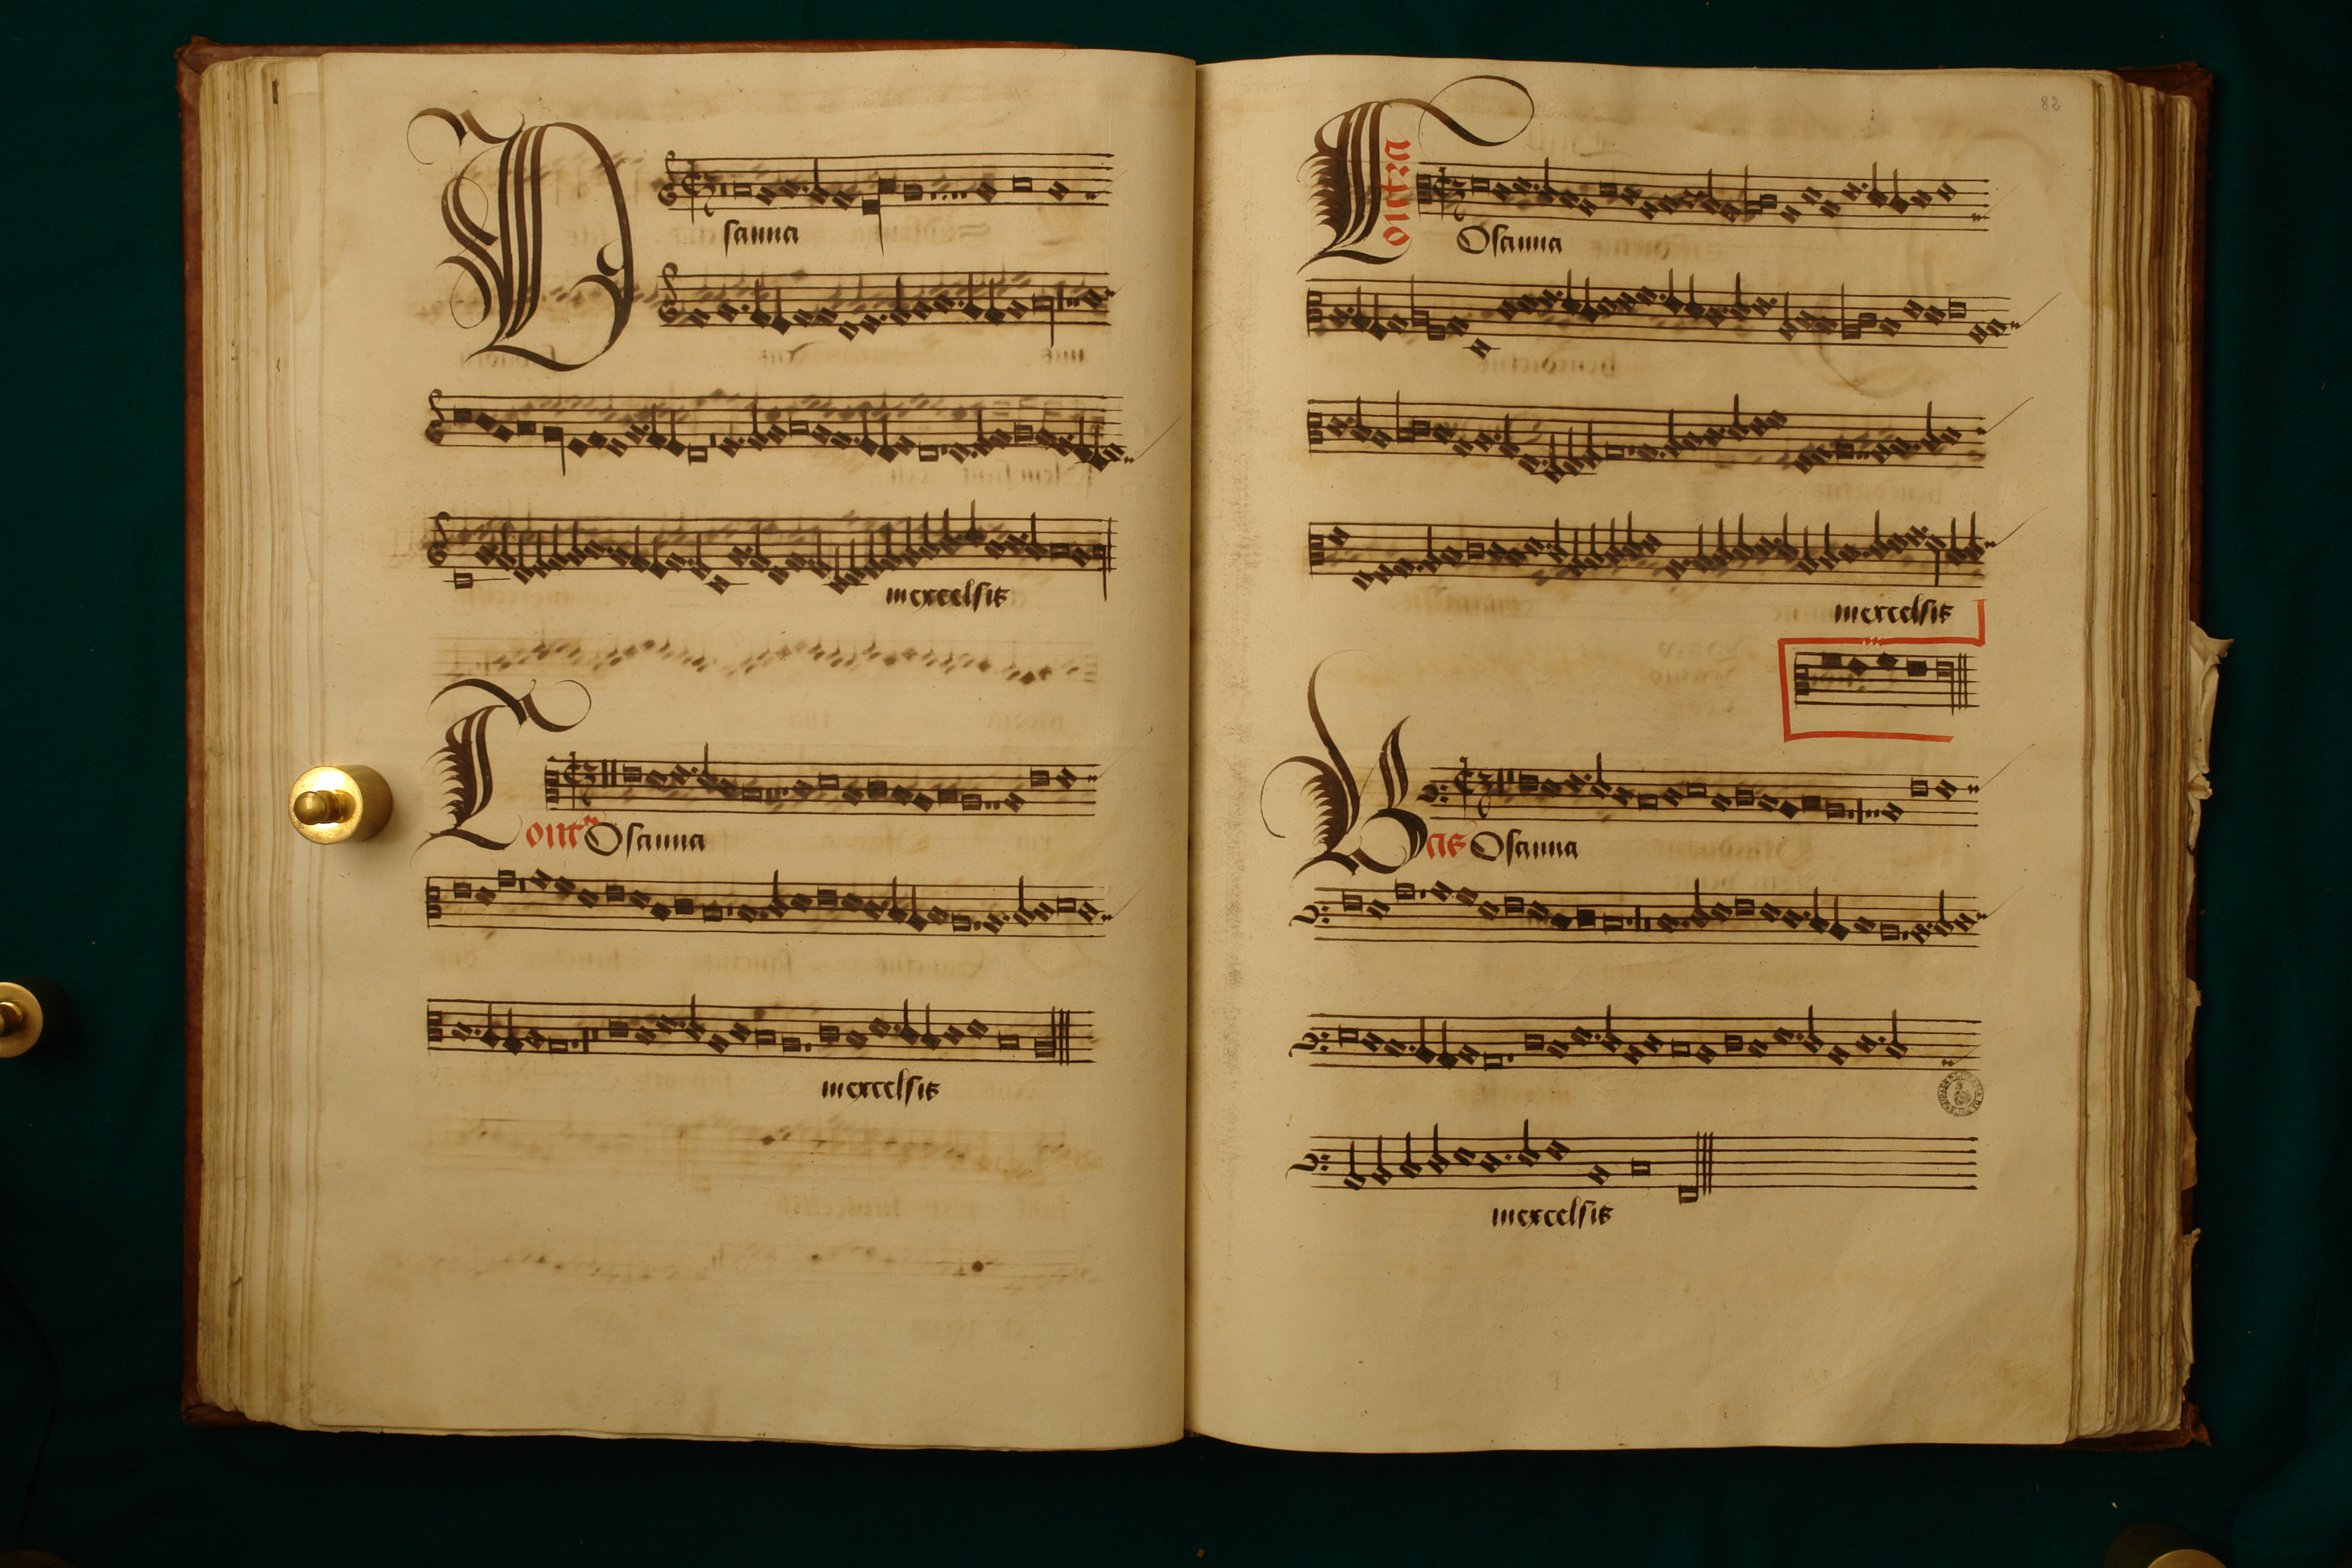 Osanna
inexcelsis
Cont<sup>a</sup> Osanna
inexcelsis
83
Contra
Osanna
inexcelsis
Bas Osanna
inexcelsis